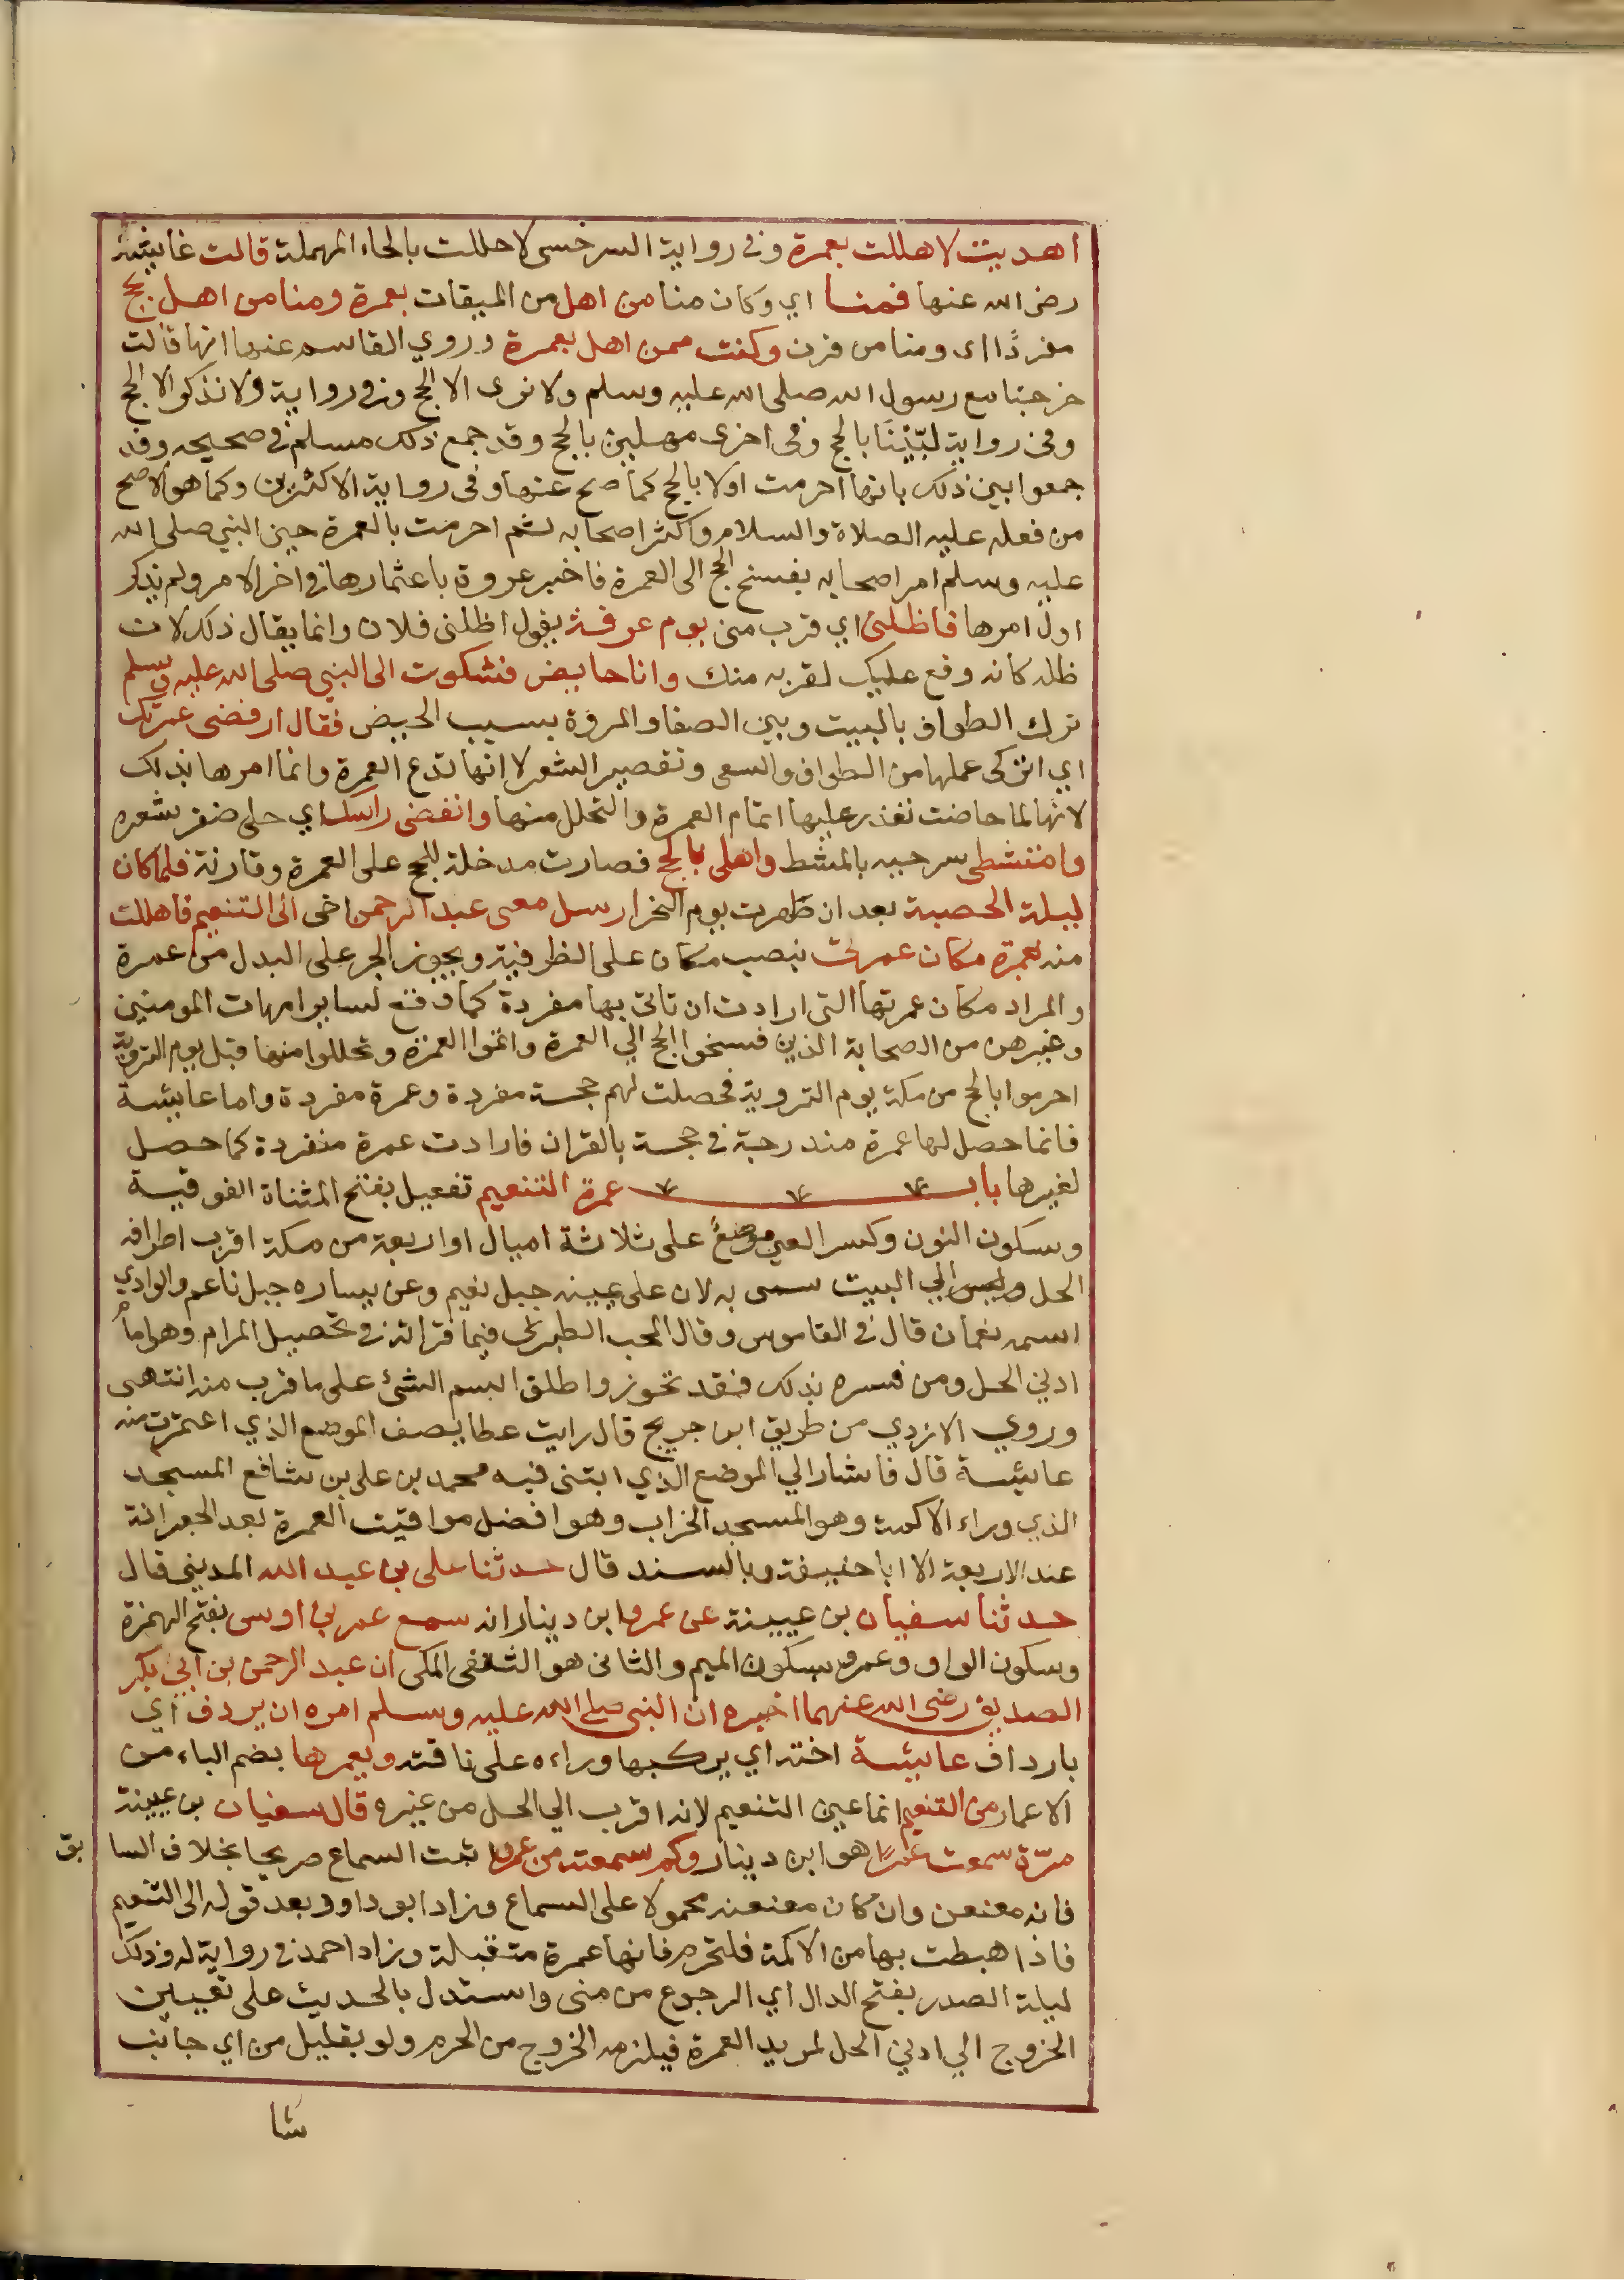 اهديت لاهللت بعمرة وفي رواية السرخسي لاحللت بالحاء المهملة قالت عايشة
رضى الله عنها فمنا اي وكان منا من اهل من الميقات بعمرة ومنا من اهل بحج
مفردًا اى ومنا من قرن وكنت ممن اهل بعمرة وروي القاسم عنها انها قالت
خرجنا مع رسول الله صلى الله عليه وسلم ولا نرى الا الحج وفي رواية ولا نذكر الا الحج
وفى رواية لبّيْنَا بالحج وفى اخرى مهلين بالحج وقد جمع ذلك مسلم في صحيحه وقد
جمعوا بين ذلك بانها احرمت اولا بالحج كما صح عنها وفى رواية الاكثرين وكما هو الاصح
من فعله عليه الصلاة والسلام واكثر اصحابه ثم احرمت بالعمرة حين النبي صلى الله
عليه وسلم امر اصحابه بفسخ الحج الى العمرة فاخبر عروة باعتمارها في اخر الامر ولم يذكر
اول امرها فاظلنى اي قرب منى يوم عرفة يقول اظلنى فلان وانما يقال ذلك لان
ظله كانه وقع عليك لقربه منك وانا حايض فشكوت الى النبي صلى الله عليه وسلم
ترك الطواف بالبيت وبين الصفا والمروة بسبب الحيض فقال ارفضى عمرتك
اي اتركى عملها من الطواف والسعى وتقصير الشعر لا انها تدع العمرة وانما امرها بذلك
لانها لما حاضت تعذر عليها اتمام العمرة والتحلل منها وانفضى راسك اي حلى ضفر شعره
وامتشطى سرحيه بالمشط واهلى بالحج فصارت مدخلة للحج على العمرة وقارنة فلما كان
ليلة الحصبة بعد ان طهرت يوم النحر ارسل معى عبد الرحمن اخى الى التنعيم فاهللت
منه بعمرة مكان عمرتى بنصب مكان على الظرفية ويجوز الجر على البدل من عمرة
والمراد مكان عمرتها التى ارادت ان تاتى بها مفردة كما وقع لساير امهات المومنين
وغيرهن من الصحابة الذين فسخوا الحج الي العمرة واتموا العمرة وتحللوا منها قبل يوم التروية
احرموا بالحج من مكة يوم التروية فحصلت لهم حجة مفردة وعمرة مفردة واما عايشة
فانما حصل لها عمرة مندرجة في حجة بالقران فارادت عمرة منفردة كما حصل
لغيرها باب عمرة التنعيم تفعيل بفتح المثناة الفوقية
وسكون النون وكسر العين موضعٌ على ثلاثة اميال او اربعة من مكة اقرب اطراف
الحل الي البيت سمى به لان على يمينه جبل نعيم وعن يساره جبل ناعم والوادي
اسمه نعمان قال في القاموس وقال المحب الطبرى فيما قراته في تحصيل المرام وهو امام
ادني الحل ومن فسره بذلك فقد تجوز واطلق اسم الشئ على ما قرب منه انتهى
وروي الازدي من طريق ابن جريج قال رايت عطا يصف الموضع الذي اعتمرت منه
عايشة قال فاشار الي الموضع الذي ابتنى فيه محمد بن على بن شافع المسجد
الذي وراء الاكمة وهو المسجد الخراب وهو افضل مواقيت العمرة بعد الجعرانة
عند الاربعة الا ابا حنيفة وبالسند قال حدثنا على بن عبد الله المديني قال
حدثنا سفيان بن عيينة عن عمرو ابن دينار انه سمع عمر بن اوس بفتح الهمزة
وسكون الواو وعمرو بسكون الميم والثانى هو الثقفى المكى ان عبد الرحمن بن ابي بكر
الصديق رضى الله عنهما اخبره ان النبى صلى الله عليه وسلم امره ان يردف اي
بارداف عايشة اخته اي يركبها وراءه على ناقته ويعمرها بضم الياء من
الاعمار من التنعيم انما عين التنعيم لانه اقرب الي الحل من غيره قال سفيان بن عيينة
مرّة سمعت عمرًا هو ابن دينار وكم سمعته من عمرو ثبت السماع صريحا بخلاف السا بق
فانه معنعن وان كان معنعنه محمولا على السماع وزاد ابو داوو بعد قوله الى التنعيم
فاذا هبطت بها من الاكمة فلتحرم فانها عمرة متقبلة وزاد احمد في رواية له وذلك
ليلة الصدر بفتح الدال اي الرجوع من منى واستدل بالحديث على تعيين
الخروج الي ادني الحل لمريد العمرة فيلزمه الخروج من الحرم ولو بقليل من اي جانب
شا